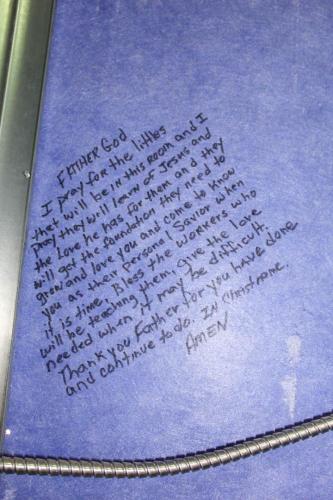 FATHER GOD
I pray for the littles
that will be in this room and I
pray they will learn of Jesus and
the love he has for them and they
will get the foundation they need to
grow and love you and come to know
you as their personal Savior when
it is time. Bless the workers who
will be teaching them. Give the love
needed when it may be difficult.
Thank you Father for you have done
and continue to do. In Christ name.
AMEN